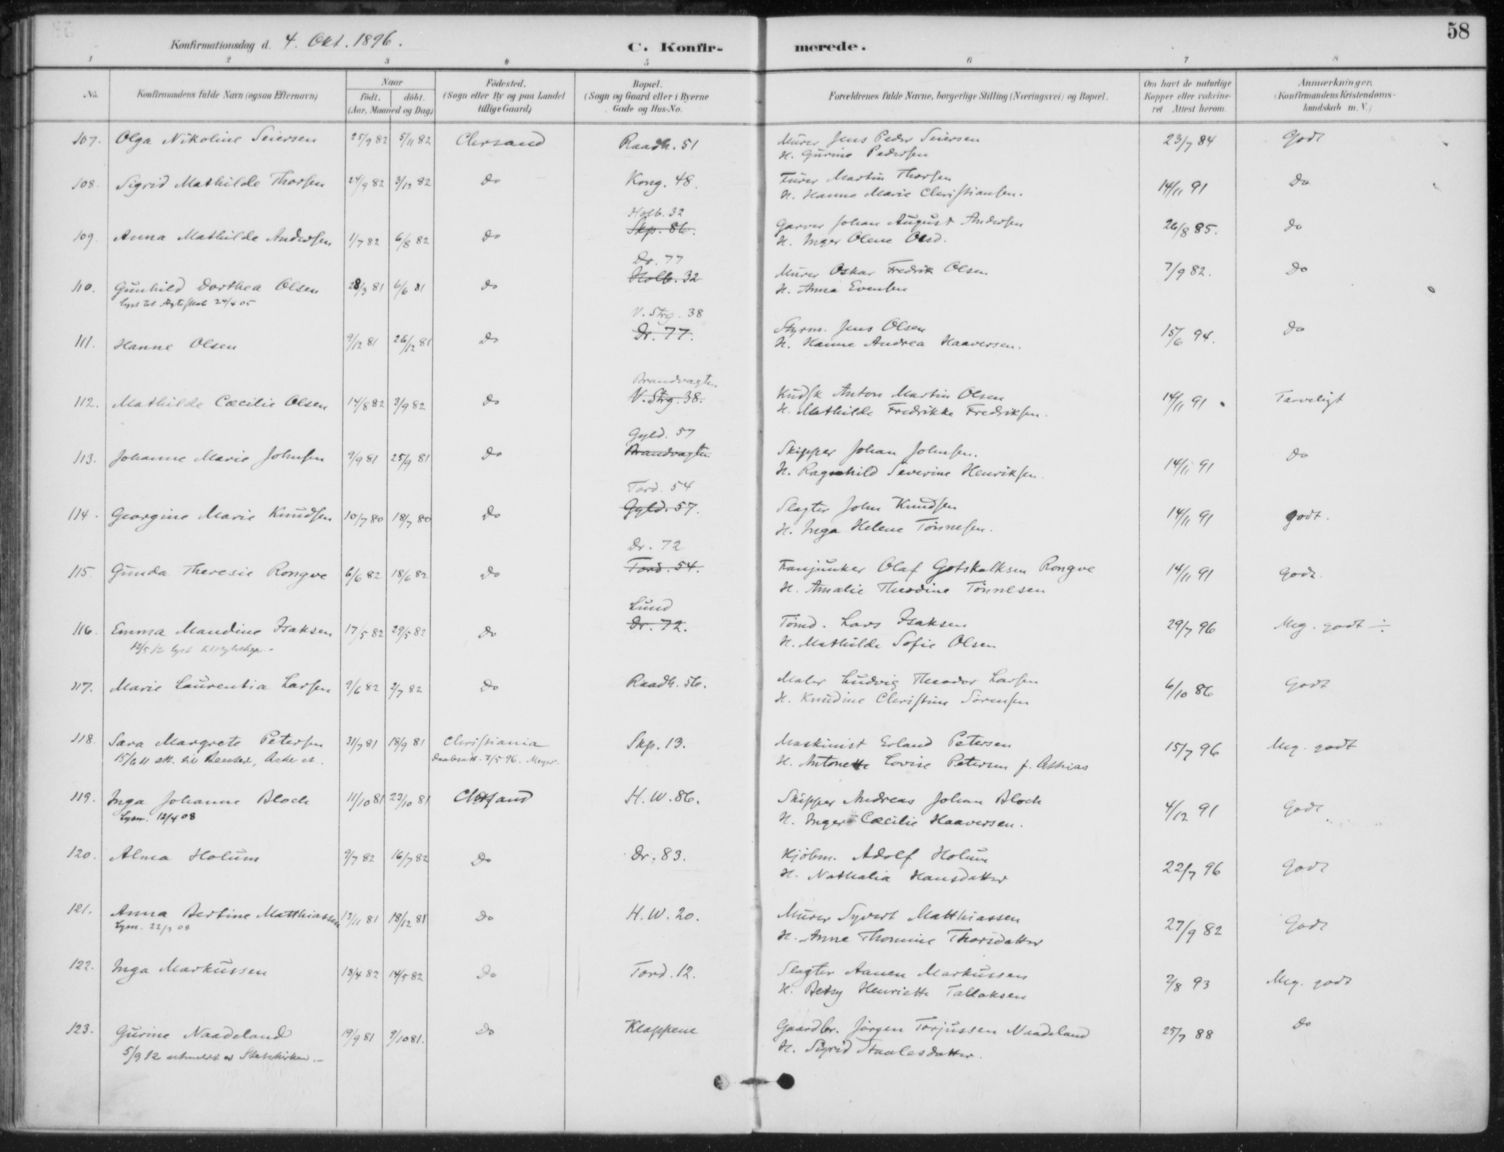 58
Konfirmationsdag d. 4. Okt. 1896.
C. Konfir-
merede.
1 2 3 4 5 6 7 8
No. Konfirmandens fulde Navn (ogsaa Efternavn)
Naar
født. døbt.
(Aar, Maaned og Dag)
Fødested.
(Sogn eller By og paa Landet
tillige Gaard)
Bopæl.
(Sogn og Gaard eller i Byerne
Gade og Hus-No.
Forældrenes fulde Navne, borgerlige Stilling (Næringsvei) og Bopæl.
Om havt de naturlige
Kopper eller vakcine-
ret Attest herom.
Anmærkninger.
(Konfirmandens Kristendoms-
kundskab m. V.)
107. Olga Nikoline Seiersen 25/9 82 5/11 82 Chrsand Raadh. 51 Murer Jens Peder Seiersen 23/7 84 Godt
H. Gurine Pedersen
108. Sigrid Mathilde Thorsen 24/9 82 3/12 82 Do Kong. 48. Furer Martin Thorsen 14/11 91 Do
H. Hanna Marie Christiansen.
Holb. 32
Skp. 86.
109. Anna Mathilde Andersen 1/7 82 6/8 82 Do Garver Johan August Andersen 26/8 85. Do
H. Inger Olene Olsd.
Dr. 77
Holb. 32
110. Gunhild Dorthea Olsen 28/3 81 6/6 81 Do Murer Oskar Fredrik Olsen 7/9 82. Do
H. Anna Evensen
V. Strg. 38
Dr. 77.
111. Hanne Olsen 9/12 81 26/12 81 Do Styrm. Jens Olsen 15/6 94. Do
H. Hanne Andrea Haaversen.
Brandvagten
V. Strg. 38.
112. Mathilde Cæcilie Olsen 14/8 82 3/9 82 Do Kudsk Anton Martin Olsen 14/11 91 Tarveligt
H. Mathilde Fredrikke Fredriksen.
Gyld. 57
Brandvagten
113. Johanne Marie Johnsen 9/9 81 25/9 81 Do Skipper Johan Johnsen. 14/11 91 Do
H. Ragnhild Severine Henriksen.
Tord. 54
Gyld. 57.
114. Georgine Marie Knudsen 10/7 80 18/7 80 Do Slagter John Knudsen 14/11 91 godt.
H. Inga Helene Tönnesen.
Dr. 72
Tord. 54.
115. Gunda Theresie Rongve 6/6 82 18/6 82 Do Fanjunker Olaf Gotskalksen Rongve 14/11 91 godt.
H. Amalie Theodine Tönnesen
Lund
Dr. 72.
116. Emma Mandine Isaksen 17/5 82 29/5 82 Do Tömd. Lars Isaksen 29/7 96 Meg. godt ÷
H. Mathilde Sofie Olsen
117. Marie Laurentia Larsen 9/6 82 2/7 82 Do Raadh. 56. Maler Ludvig Theodor Larsen 6/10 86 Godt
H. Knudine Christine Sörensen
118. Sara Margrete Petersen 31/7 81 18/9 81 Christiania Skp. 13. Maskinist Erland Petersen 15/7 96 Meg. godt
Daabsatt. 7/5 96. H. Antonette Lovise Petersen f.
119. Inga Johanne Bloch 11/10 81 23/10 81 Chrsand H. W. 86. Skipper Andreas Johan Bloch 4/12 91 Godt
Lysn. 12/4 08 H. Inger Cæcilie Haaversen.
120. Alma Holum 9/7 82 16/7 82 Do Dr. 83. Kjöbm. Adolf Holum 22/7 96 Godt
H. Nathalia Hansdatter
121. Anna Bertine Matthiassen 13/11 81 18/12 81 Do H. W. 20. Murer Syvert Matthiassen 27/9 82 Godt
Lysn. 22/3 08 H. Anne Thomine Thorsdatter
122. Inga Markussen 13/4 82 14/5 82 Do Tord. 12. Slagter Aanen Markussen 2/8 93 Meg. godt
H. Betsy Henriette Tallaksen
123. Gurine Naadeland 19/9 81 9/10 81. Do Kleppene Gaardbr. Jörgen Torjussen Naadeland 25/7 88 Do
5/9 12 utmeldt av Statskirken.— H. Sigrid Staalesdatter.